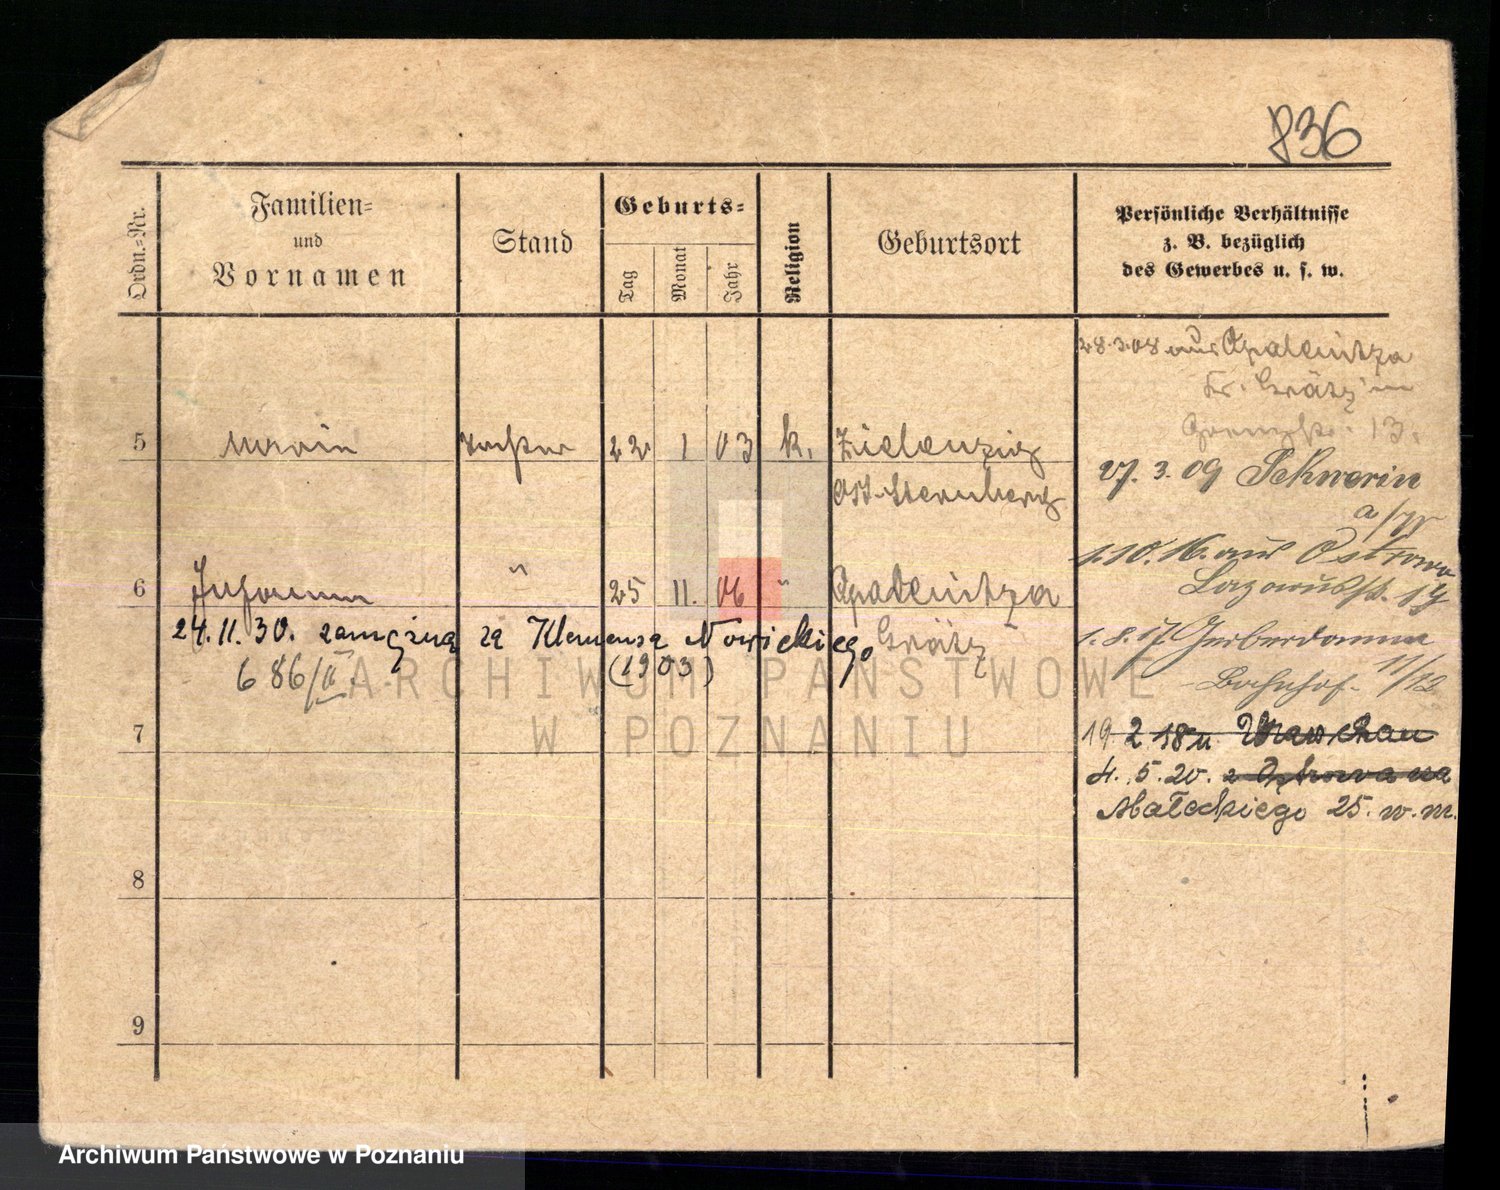 836
Ordn.=Nr.
Familien=
und
Vornamen
Stand
Geburts=
Tag
Monat
Jahr
Religion
Geburtsort
Persönliche Verhältnisse
z. B. bezüglich
des Gewerbes u. s. w.
28.3.08 aus Opalenitza
Kr. Grätz in
13.
5 Maria Tochter 22 1 03 k. Zielenzig
Ost-Sternberg
27. 3. 09 Schwerin
a/W
1.10.16. aus Ostrowo
Lazarusstr. 19
6 Johanna " 25 11. 06 " Opalenitza
Grätz
24.11.30. zamężna za Klemensa Nowickiego
(1903)
686/II
1.8.17 Gerberdamm
Bahnhof. 11/12
7
19 2 18 n.
4. 5. 20. z Ostrowa na
Małeckiego 25. w. m.
8
9
ARCHIWUM PAŃSTWOWE
W POZNANIU
Archiwum Państwowe w Poznaniu